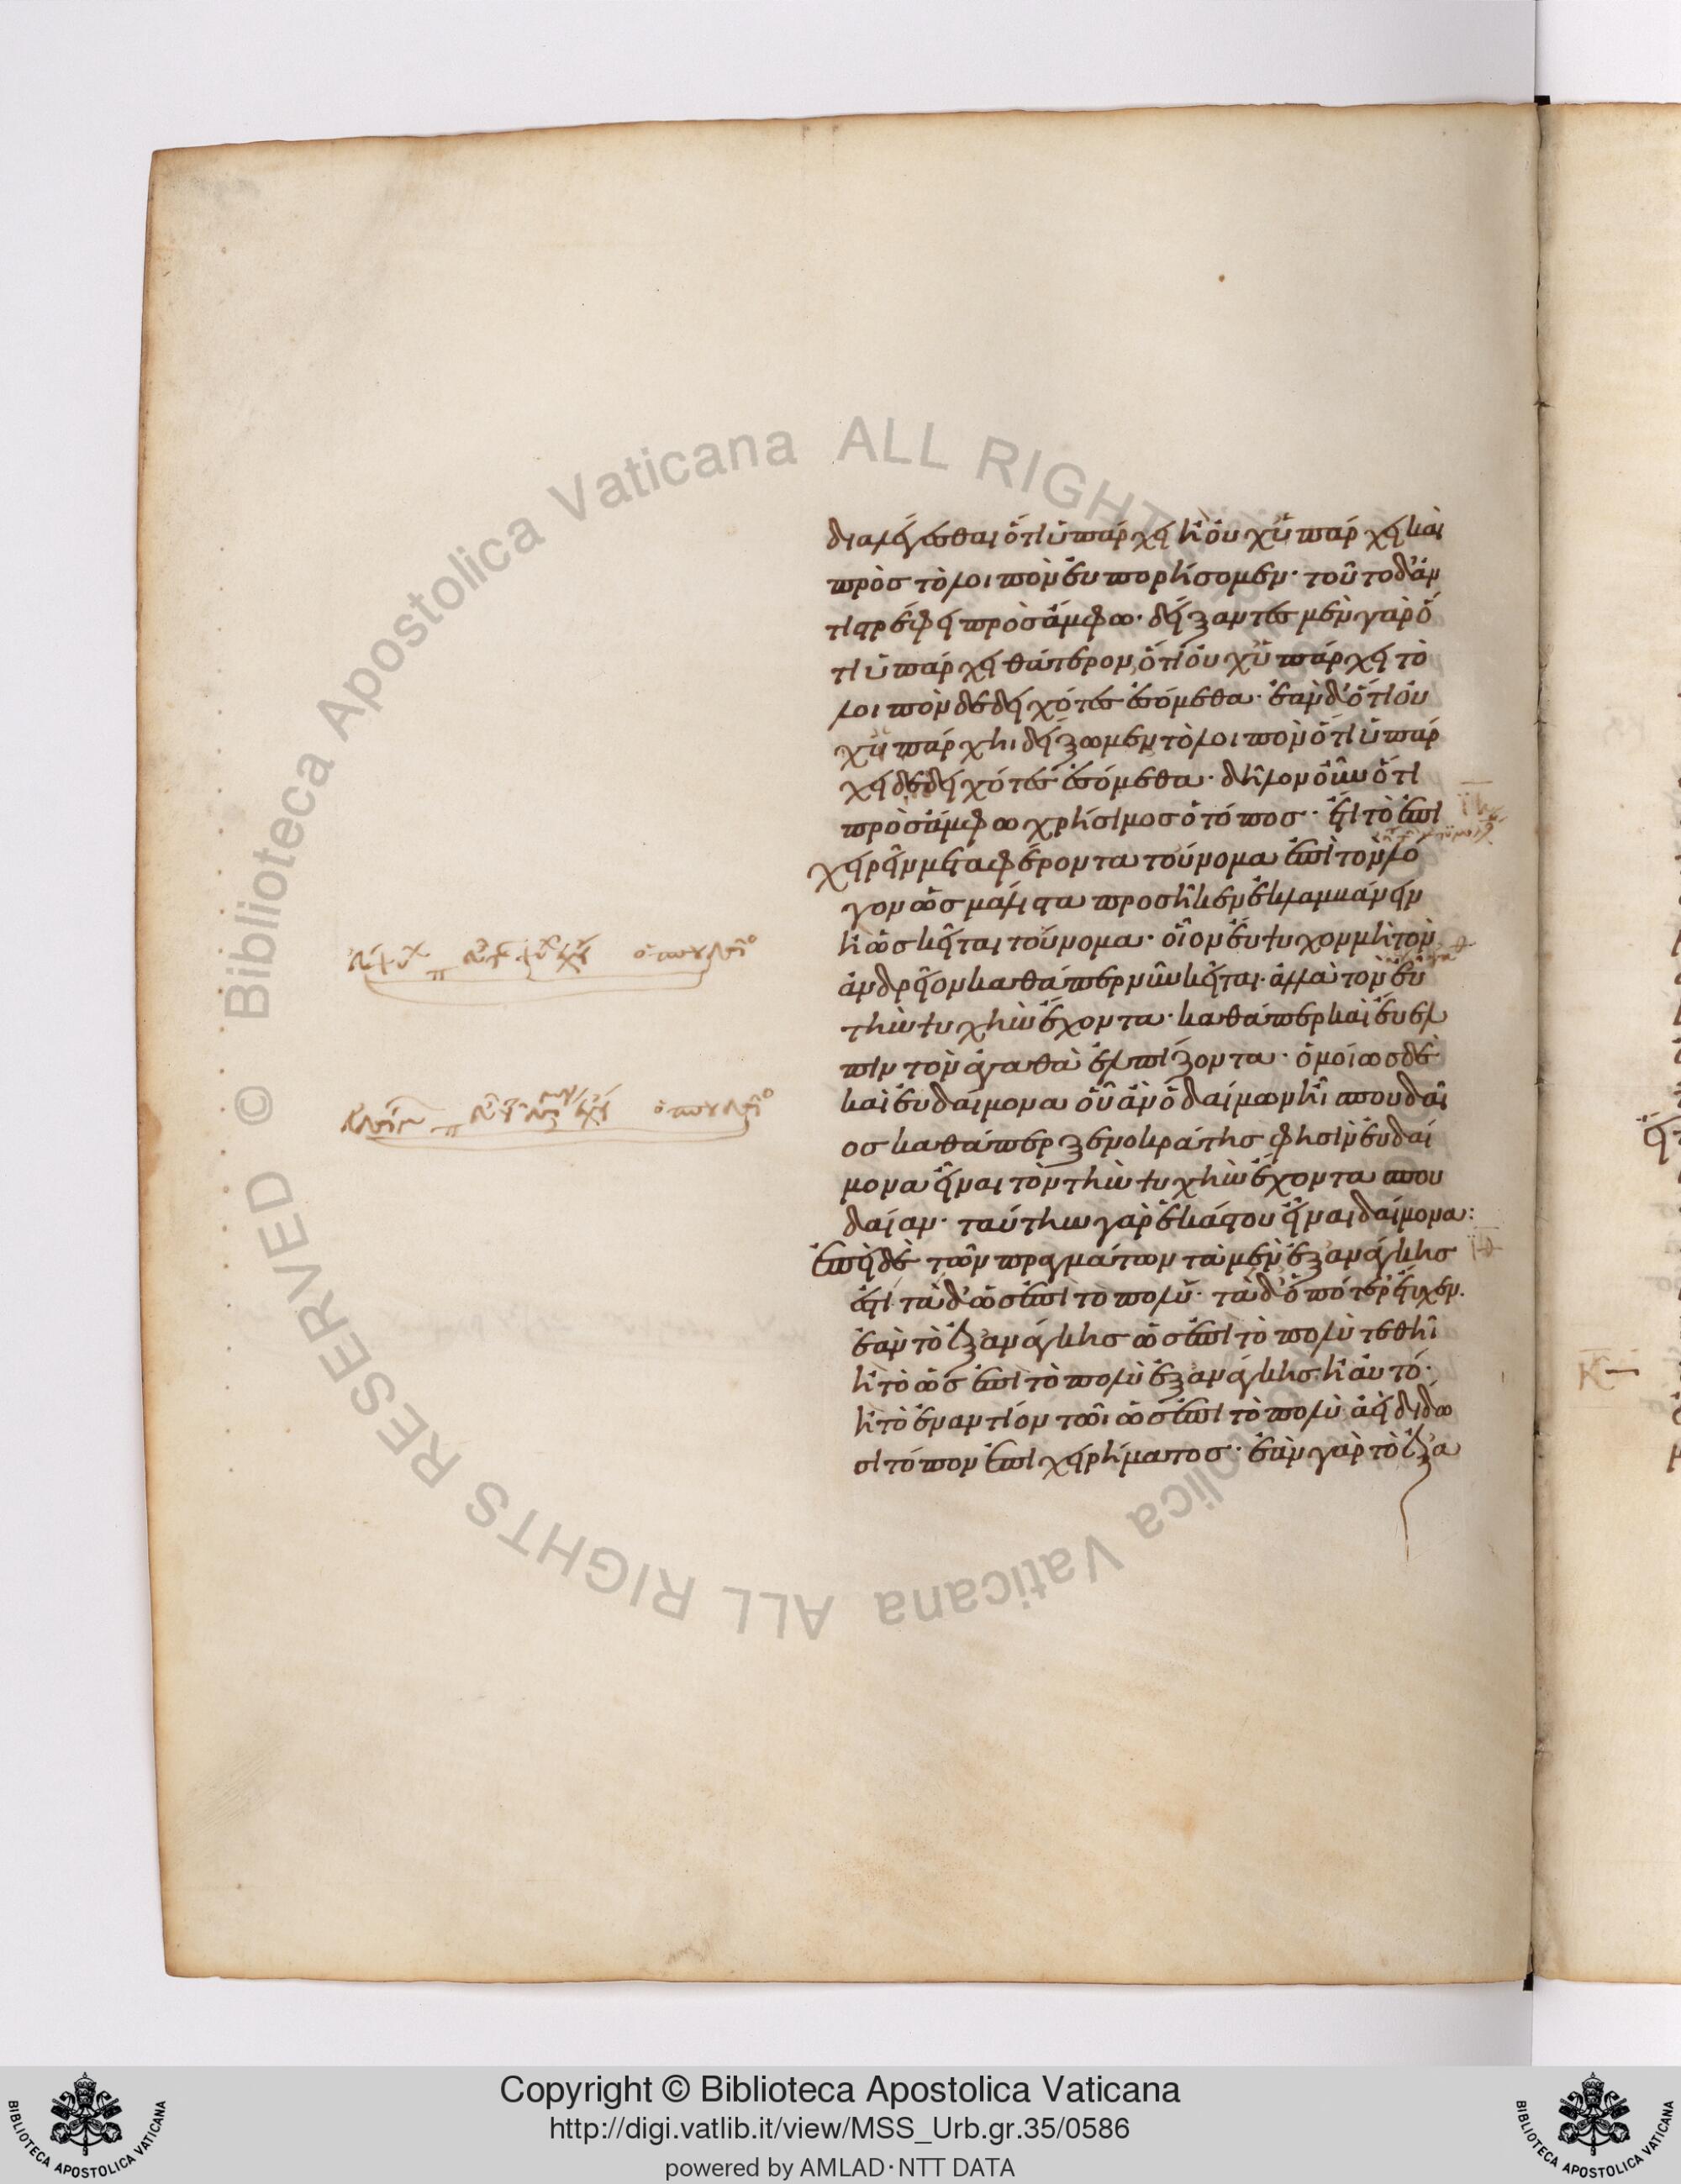 διαλέγεσθαι ὅτι ὑπάρχει ἢ οὐχ ὑπάρχει καὶ
πρὸς τὸ λοιπὸν εὐπορήσομεν· τοῦτο δ' ἀν
τιστρέφει πρὸς ἄμφω· δείξαντες μὲν γὰρ ὅ
τι ὑπάρχει θάτερον, ὅτι οὐχ ὑπάρχει τὸ
λοιπὸν δεδειχότες ἐσόμεθα· ἐὰν δ' ὅτι οὐ
χ ὑπάρχηι δείξωμεν τὸ λοιπὸν ὅτι ὑπάρ
χει δεδειχότες ἐσόμεθα· δῆλον οὖν ὅτι
πρὸς ἄμφω χρήσιμος ὁ τόπος· ἔτι τὸ ἐπι
χειρεῖν μεταφέροντα τοὔνομα ἐπὶ τὸν λό
γον ὡς μάλιστα προσῆκεν ἐκλαμβάνειν
ἢ ὡς κεῖται τοὔνομα· οἷον εὔψυχον μὴ τὸν
ἀνδρεῖον καθάπερ νῦν κεῖται· ἀλλὰ τὸν εὖ
τὴν ψυχὴν ἔχοντα· καθάπερ καὶ εὔελ
πιν τὸν ἀγαθὰ ἐλπίζοντα· ὁμοίως δὲ
καὶ εὐδαίμονα οὗ ἂν ὁ δαίμων ἦι σπουδαῖ
ος καθάπερ ξενοκράτης φησὶν εὐδαί
μονα εἶναι τὸν τὴν ψυχὴν ἔχοντα σπου
δαίαν· ταύτην γὰρ ἑκάστου εἶναι δαίμονα:
ἐπεὶ δὲ τῶν πραγμάτων τὰ μὲν ἐξ ἀνάγκης
ἐστὶ τὰ δ' ὡς ἐπὶ τὸ πολύ· τὰ δ' ὁπότερ' ἔτυχεν.
ἐὰν τὸ ἐξ ἀνάγκης ὡς ἐπὶ τὸ πολὺ τεθῆι
ἢ τὸ ὡς ἐπὶ τὸ πολὺ ἐξ ἀνάγκης ἢ αὐτό·
ἢ τὸ ἐναντίον τῶι ὡς ἐπὶ τὸ πολὺ ἀεὶ δίδω
σι τόπον ἐπιχειρήματος· ἐὰν γὰρ τὸ ἐξ ἀ
Biblioteca Apostolica Vaticana ALL RIGHTS RESERVED ©
Copyright © Biblioteca Apostolica Vaticana
http://digi.vatlib.it/view/MSS_Urb.gr.35/0586
powered by AMLAD·NTT DATA
BIBLIOTECA APOSTOLICA VATICANA
BIBLIOTECA APOSTOLICA VATICANA